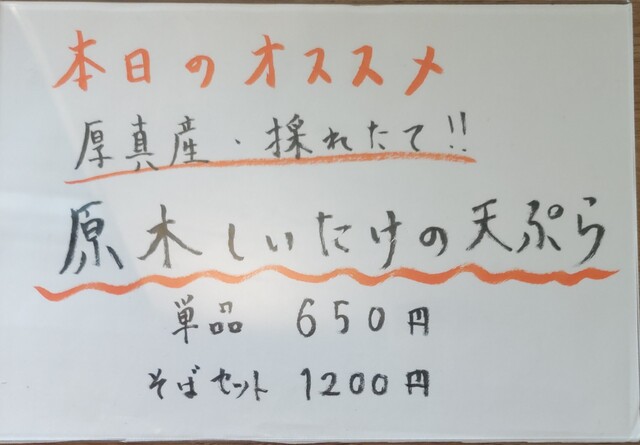 本日のオススメ
厚真産・採れたて!!
原木しいたけの天ぷら
単品 650円
そばセット 1200円